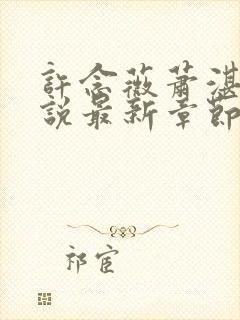 許念薇蕭湛
說最新章節
祁宦